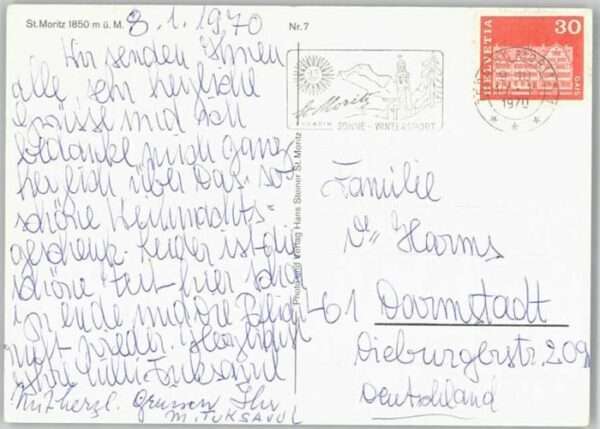 St. Moritz 1850 m ü. M.
8.1.1970
Nr. 7
Wir senden Ihnen
alle sehr herzliche
Grüsse und ich
bedanke mich ganz
herzlich über das so
schöne Weihnachts-
geschenk. Leider ist die
schöne Zeit hier schon
zu ende und die
ruft wieder. Herzlichst
Ihre Lilli Tuksavul
Mit herzl. Grüssen Ihr
M. TUKSAVUL
Photo und Verlag Hans Steiner St. Moritz
St. Moritz
SONNE - WINTERSPORT
HELVETIA
30
GAIS
1970
Familie
Harms
61 Darmstadt
Dieburgerstr. 209
Deutschland